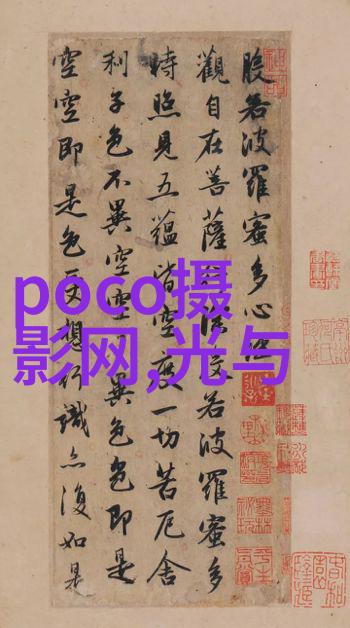 般若波羅蜜多心經
觀自在菩薩行深般若波羅蜜多
時照見五蘊皆空度一切苦厄舍
利子色不異空空不異色色即是
空空即是色受想行識亦復如是
poco摄
影网,光与